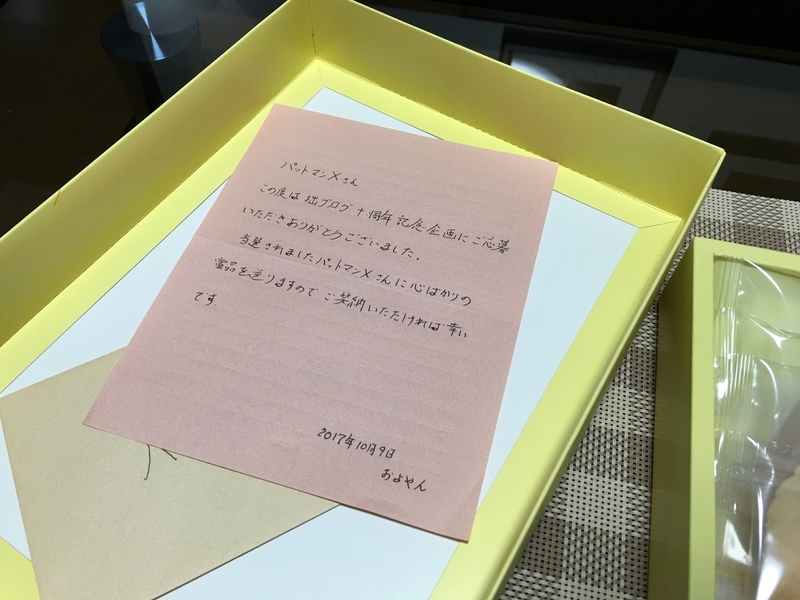 パットマンXさん
この度は拙ブログ十周年記念企画にご応募
いただきありがとうございました。
当選されましたパットマンXさんに心ばかりの
賞品を送りますのでご笑納いただければ幸い
です。
2017年10月9日
およやん